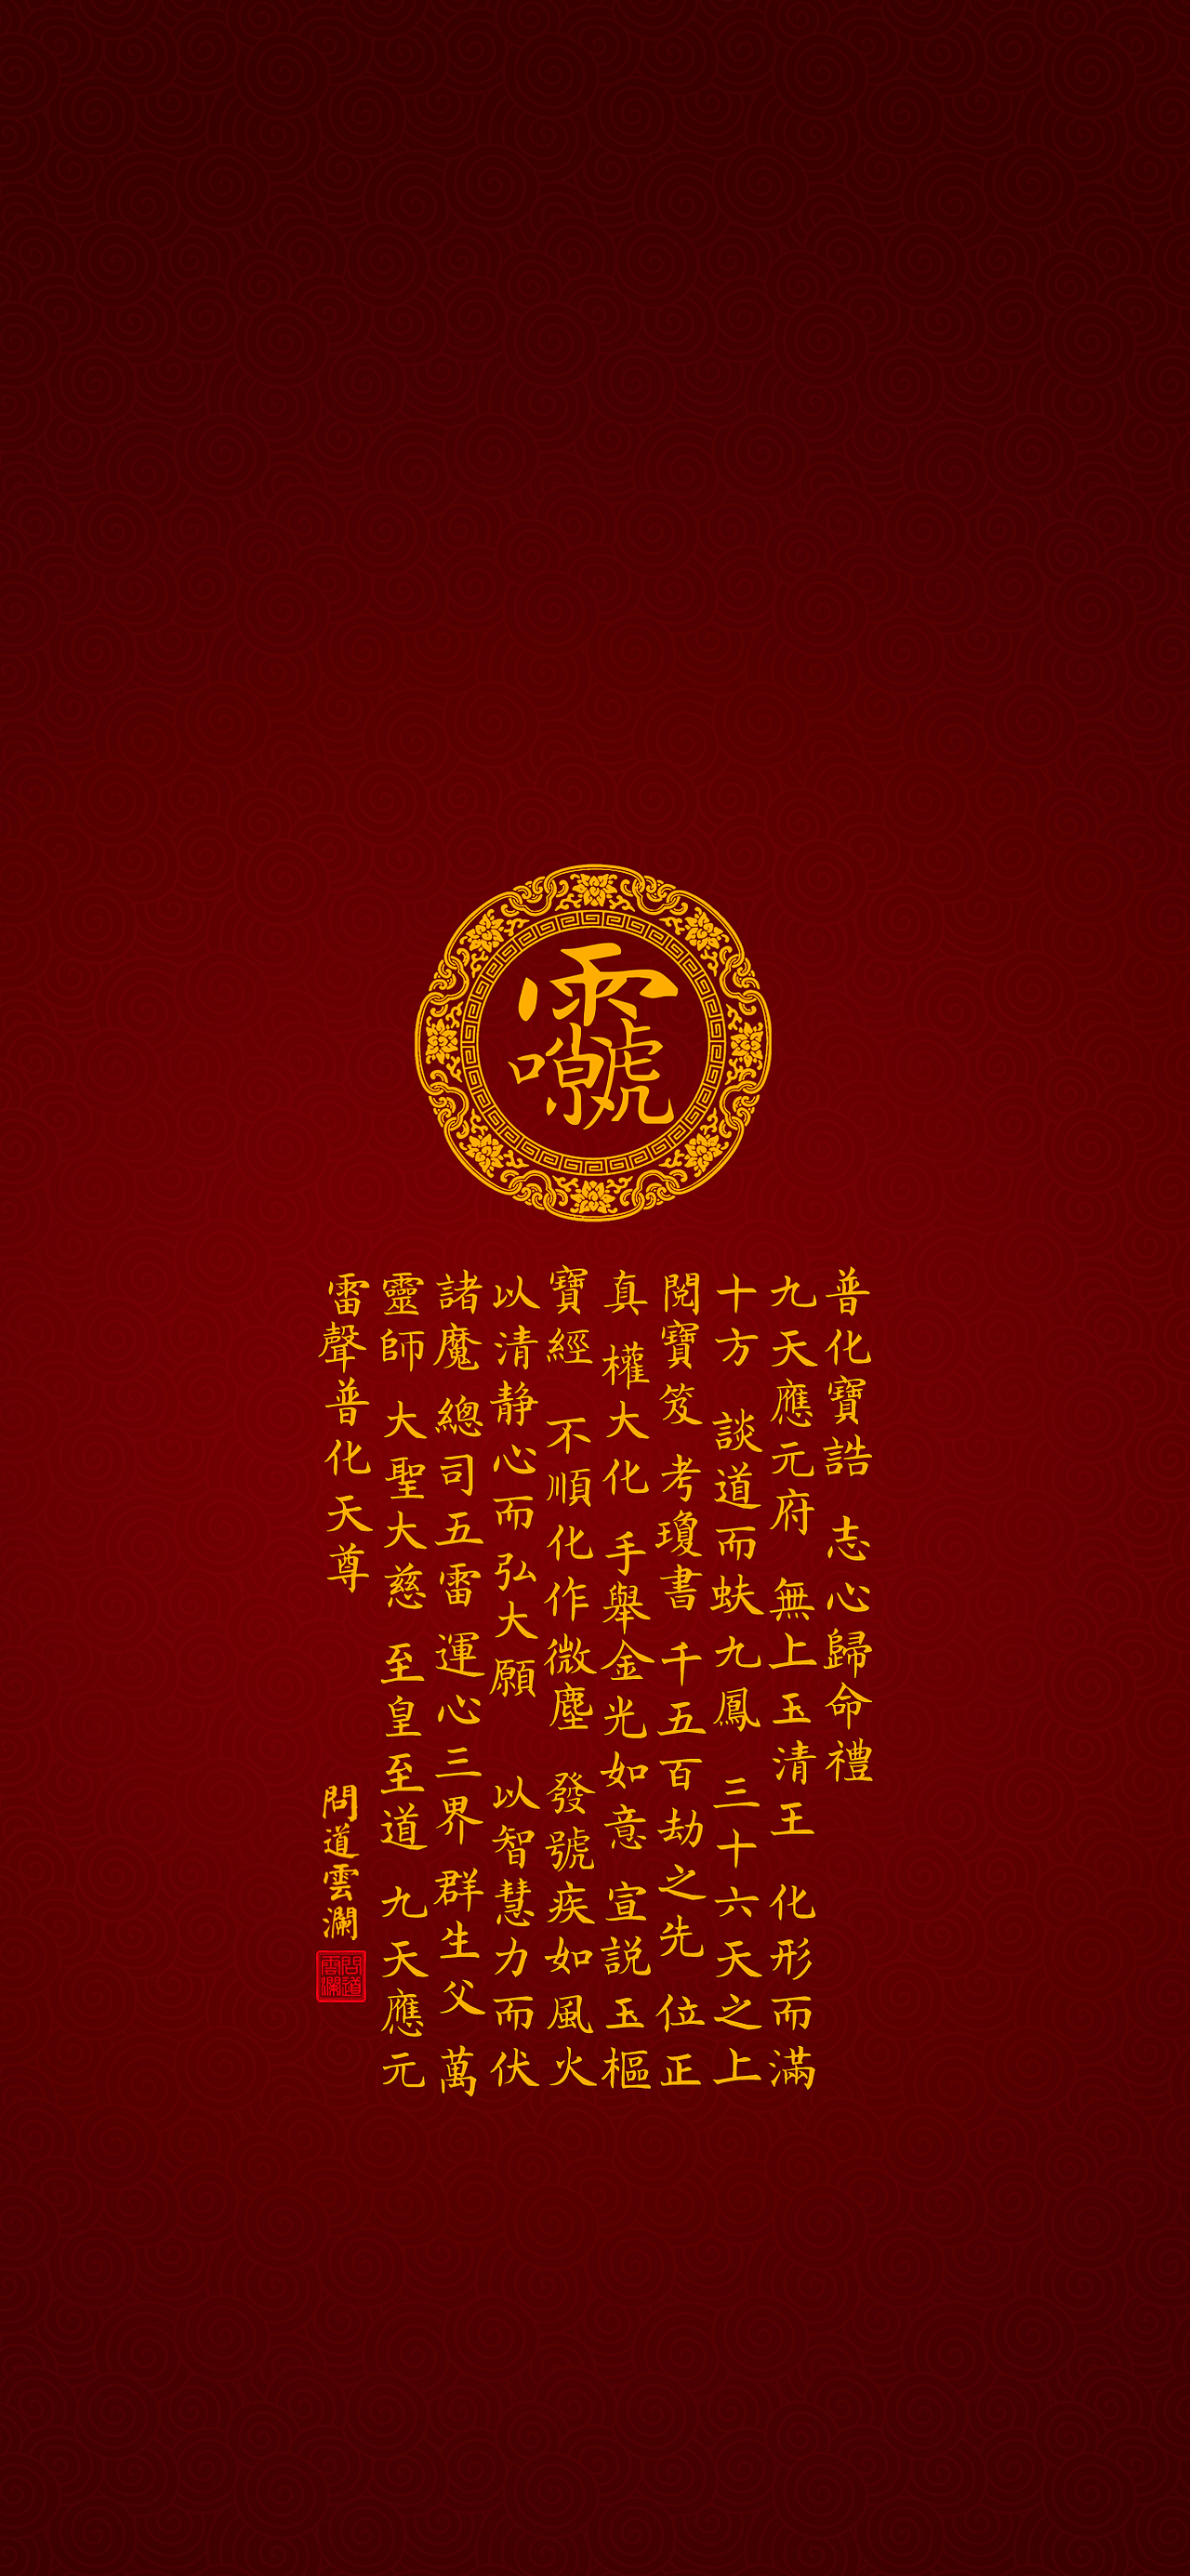 普化寶誥 志心歸命禮
九天應元府 無上玉清王 化形而滿
十方 談道而蚨九鳳 三十六天之上
閲寶笈 考瓊書 千五百劫之先 位正
真 權大化 手舉金光如意 宣説玉樞
寶經 不順化作微塵 發號疾如風火
以清静心而弘大願 以智慧力而伏
諸魔 總司五雷 運心三界 群生父 萬
靈師 大聖大慈 至皇至道 九天應元
雷聲普化天尊
問道雲瀾
問道
雲瀾